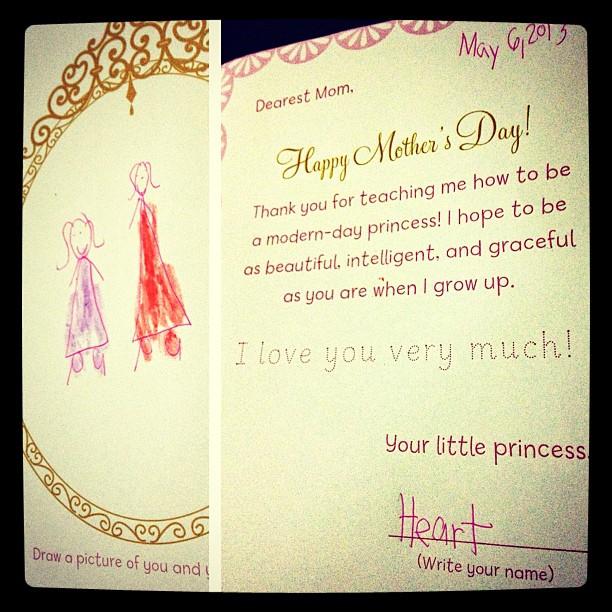 Draw a picture of you and
May 6, 2013
Dearest Mom,
Happy Mother's Day!
Thank you for teaching me how to be
a modern-day princess! I hope to be
as beautiful, intelligent, and graceful
as you are when I grow up.
I love you very much!
Your little princess
Heart
(Write your name)